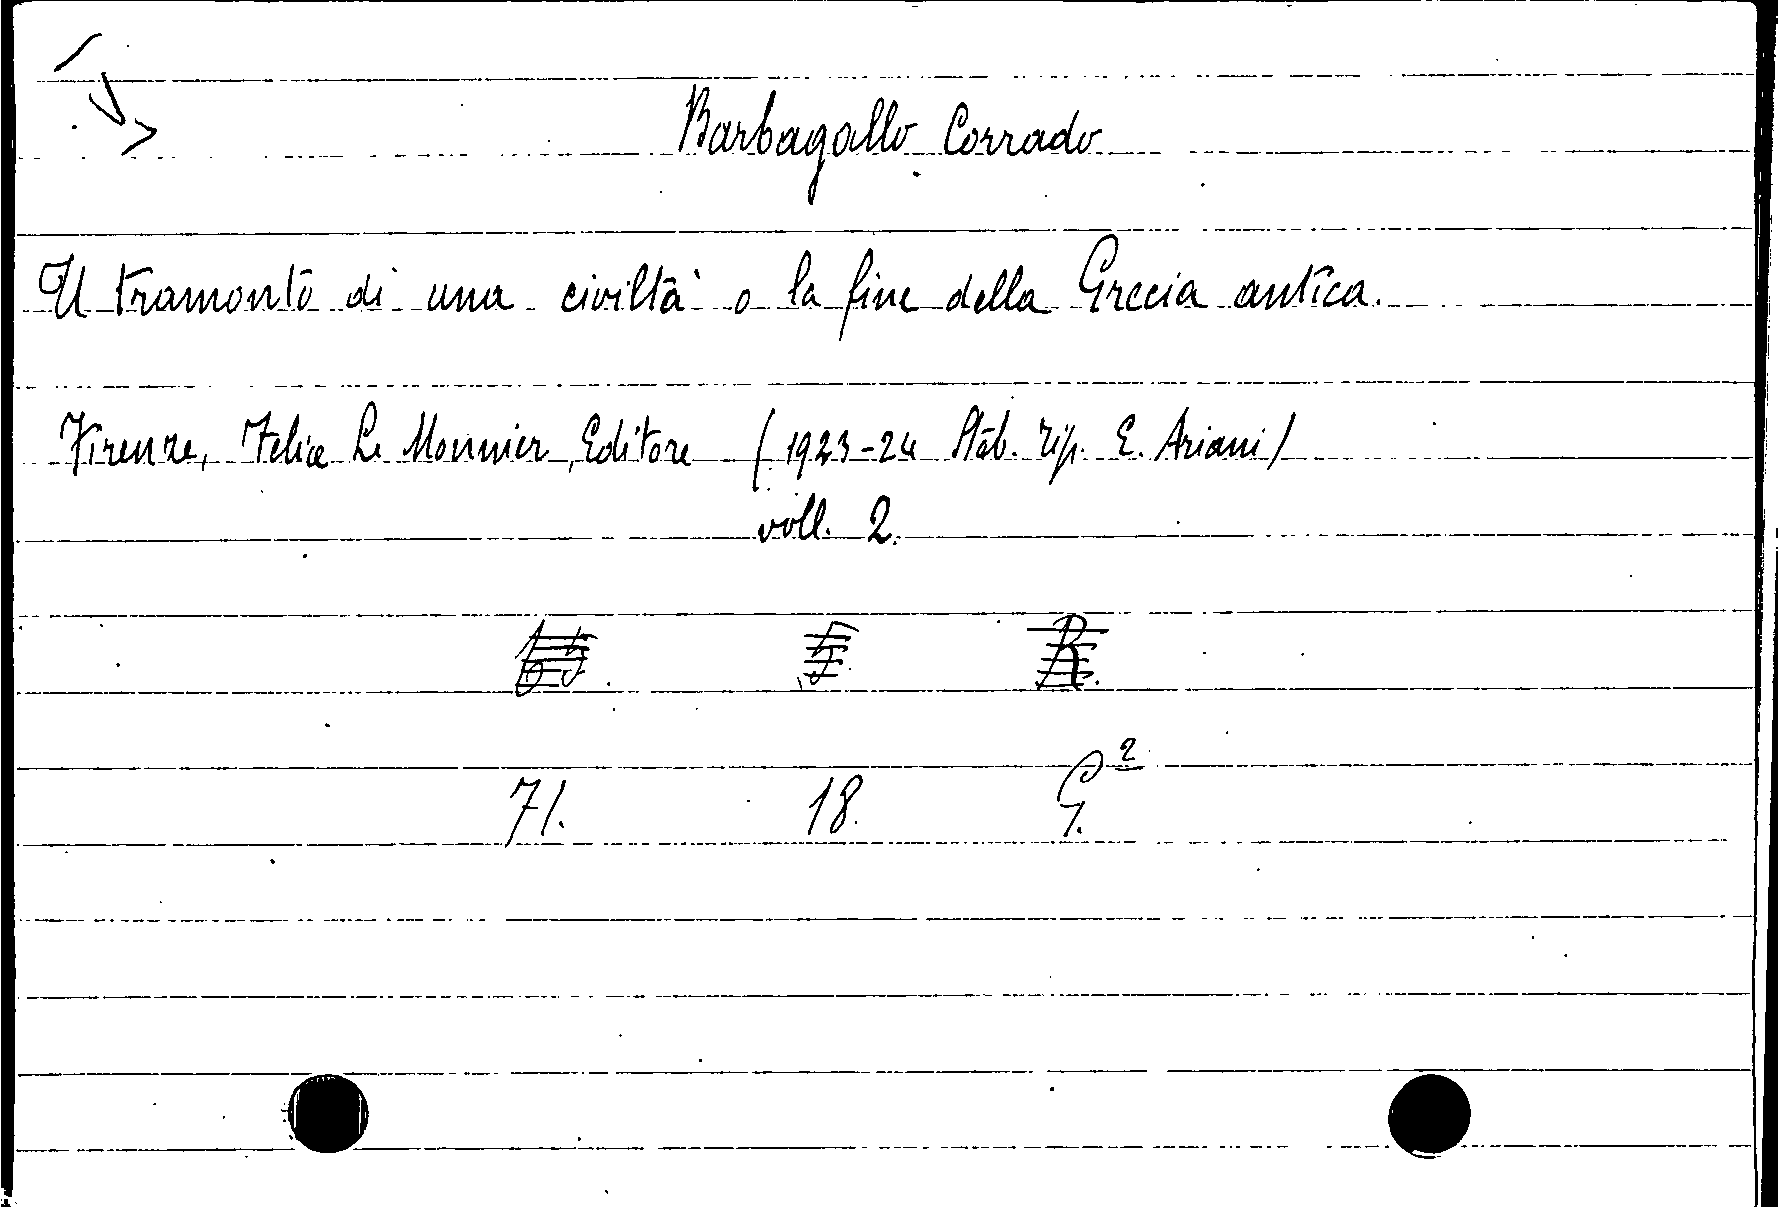 Barbagallo Corrado
Il tramonto di una civiltà o la fine della Grecia antica.
Firenze, Felice Le Monnier, Editore (1923-24 Stab. Tip. E. Ariani)
voll. 2.
71. 18. G.²